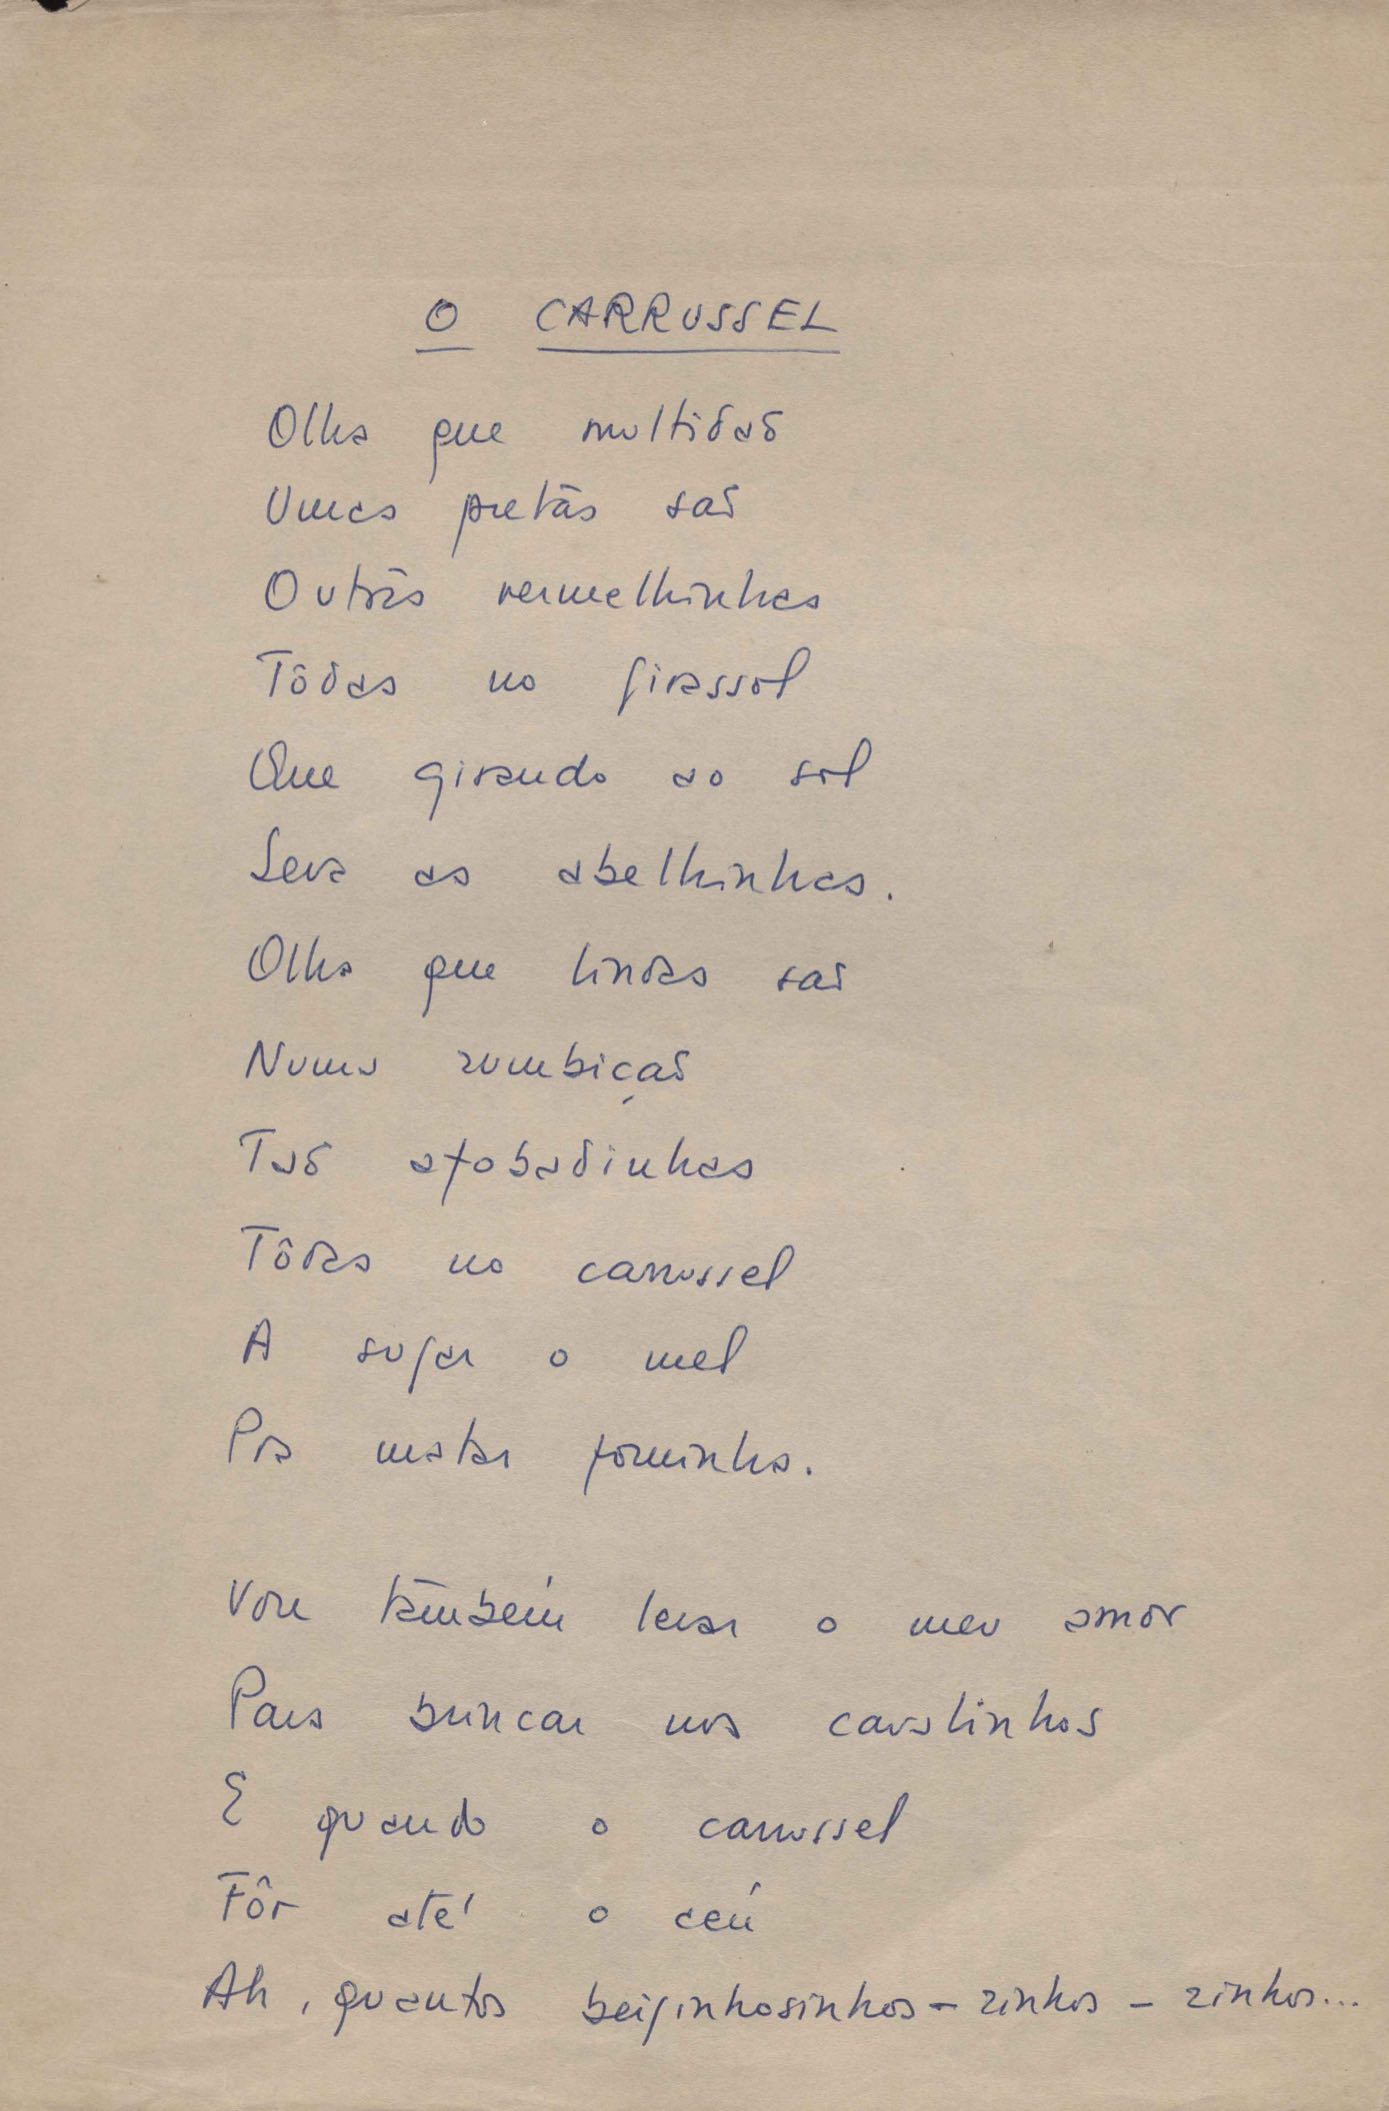 O CARRUSSEL
Olha que multidaõ
Umas pretas saõ
Outras vermelhinhas
Tôdas no girassol
Que girando ao sol
Leva as abelhinhas.
Olha que lindas saõ
Numa zumbiçaõ
Taõ afobadinhas
Tôdas no carrussel
A sugar o mel
Pra matar fominha.
Vou também levar o meu amor
Para brincar nos cavalinhos
E quando o carrussel
Fôr até o céu
Ah, quantos beijinhosinhos - zinhos - zinhos...